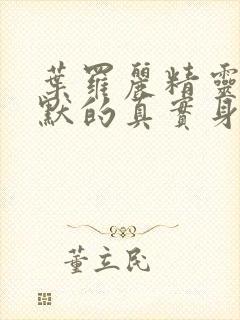 葉羅麗精靈
默的真實身
董立民